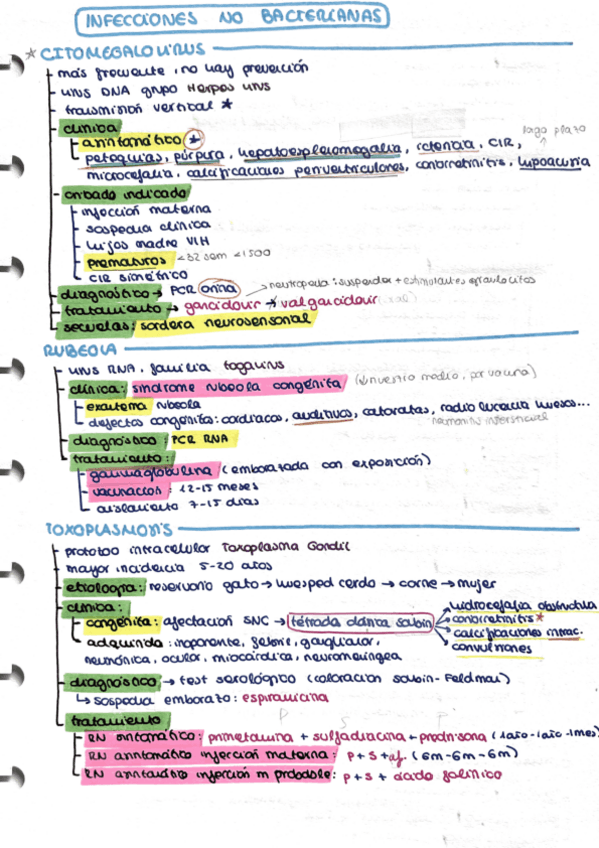 INFECCIONES NO BACTERIANAS
* CITOMEGALOVIRUS
más frecuente, no hay prevención
virus DNA grupo Herpes virus
transmisión vertical *
clínica
asintomático * largo plazo
petequias, púrpura, hepatoesplenomegalia, ictericia, CIR,
microcefalia, calcificaciones periventriculares, coriorretinitis, hipoacusia
cribado indicado
infección materna
sospecha clínica
hijos madre VIH
prematuros <32 sem <1500
CIR simétrico
diagnóstico → PCR orina → neutropenia: suspender + estimulantes granulocitos
tratamiento → ganciclovir → valganciclovir (oral)
secuelas: sordera neurosensorial
RUBEOLA
virus RNA, familia togavirus
clínica: síndrome rubeola congénita (↓ nuestro medio, por vacuna)
exantema rubeola
defectos congénita: cardiacos, auditivos, cataratas, radiolucencia huesos...
neumonitis intersticial
diagnóstico: PCR RNA
tratamiento:
gammaglobulina (embarazada con exposición)
vacunación: 12-15 meses
aislamiento 7-15 días
TOXOPLASMOSIS
protozoo intracelular Toxoplasma Gondii
mayor incidencia 5-20 años
etiología: reservorio gato → huésped cerdo → carne → mujer
clínica:
congénita: afectación SNC → tétrada clásica sabin
hidrocefalia obstructiva
coriorretinitis *
calcificaciones intrac.
convulsiones
adquirida: inaparente, febril, ganglionar,
neumónica, ocular, miocárdica, neuromeníngea
diagnóstico → test serológico (coloración Sabin-Feldman)
↳ sospecha embarazo: espiramicina
tratamiento P S P
RN sintomático: pirimetamina + sulfadiacina + prednisona (1año-1año-1mes)
RN asintomático infección materna: p + s + af. (6m-6m-6m)
RN asintomático infección m probable: p + s + ácido folínico